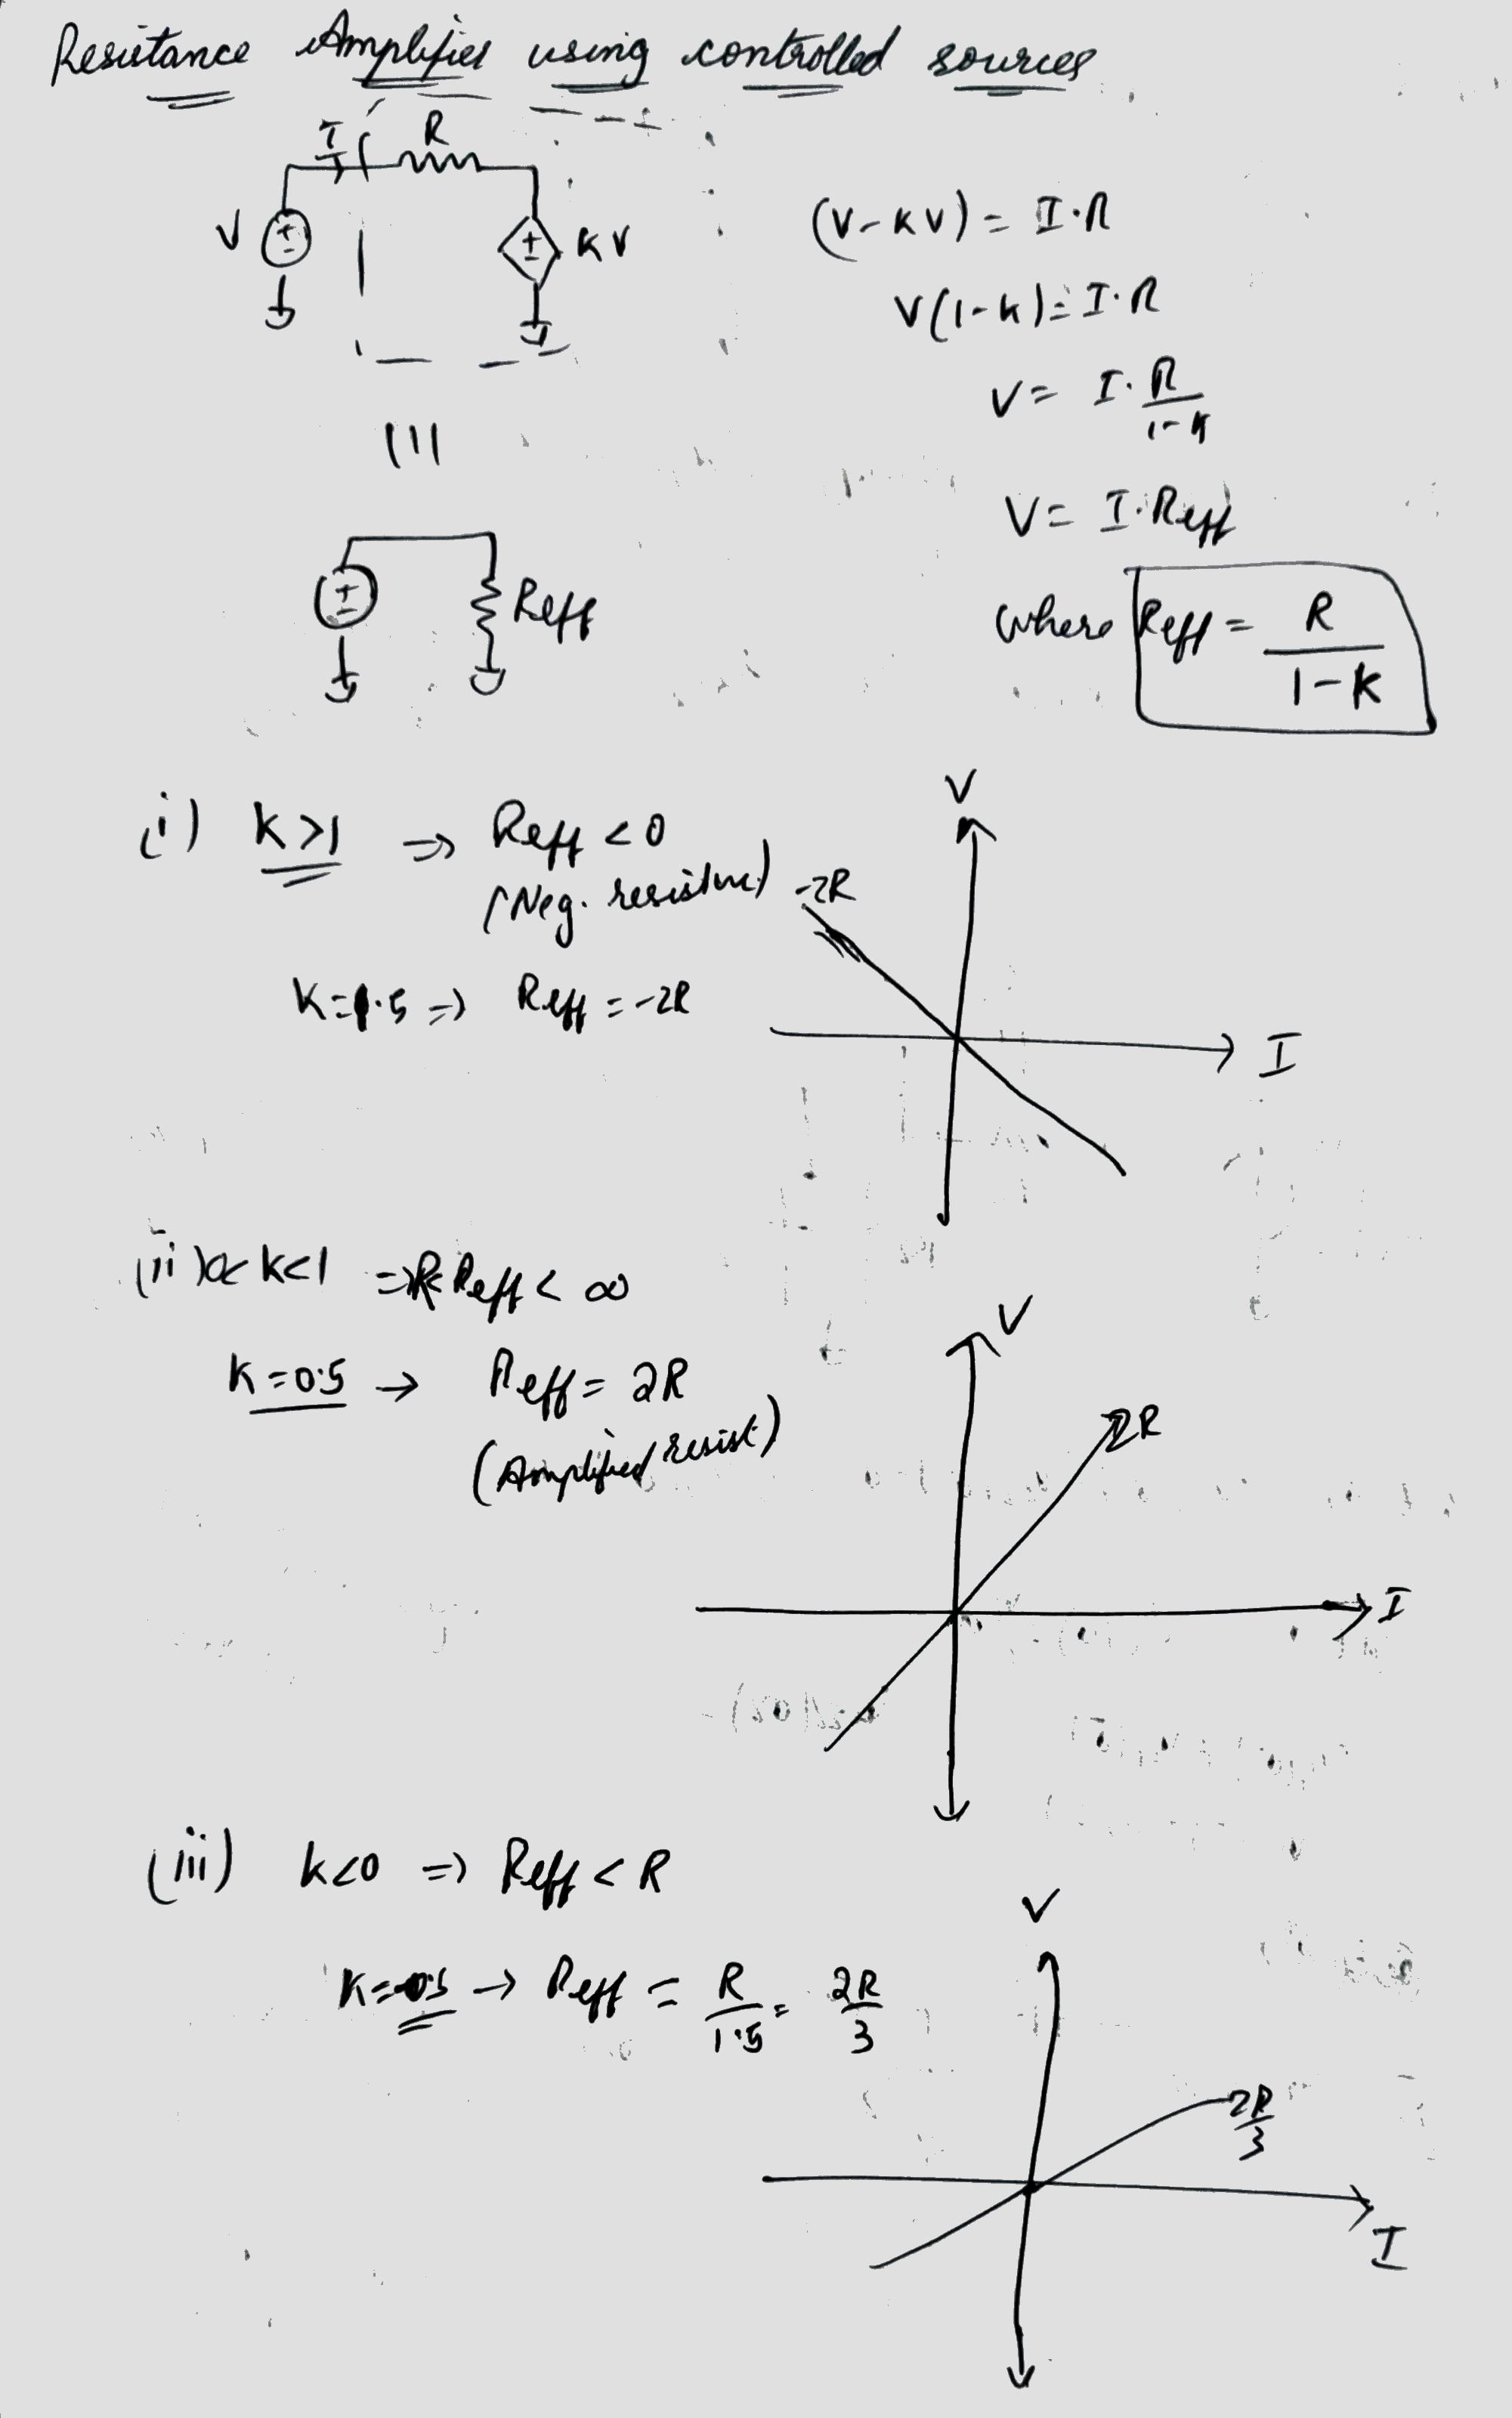 Resistance Amplifier using controlled sources
I R
V ± ± KV
(V-KV) = I·R
V(1-K) = I·R
V = I·R/1-K
V = I·Reff
± Reff
where Reff = R/1-K
(i) K>1 => Reff < 0
(Neg. resistance)
K=1.5 => Reff = -2R
V
-2R
I
(ii) 0<K<1 => R<Reff < ∞
K=0.5 → Reff = 2R
(Amplified resist)
V
2R
I
(iii) K<0 => Reff < R
K=-0.5 → Reff = R/1.5 = 2R/3
V
2R/3
I